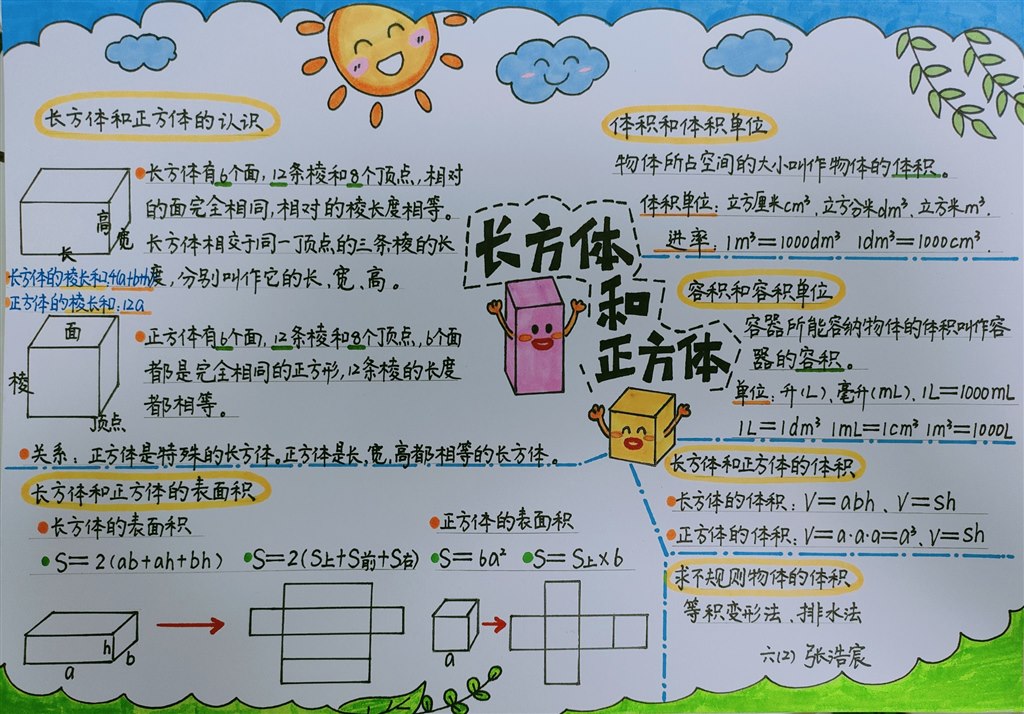 长方体和正方体的认识
•长方体有6个面,12条棱和8个顶点,相对
的面完全相同,相对的棱长度相等。
长方体相交于同一顶点的三条棱的长
度,分别叫作它的长、宽、高。
高
宽
长
长方体的棱长和:4(a+b+h)
正方体的棱长和:12a
面
棱
顶点
•正方体有6个面,12条棱和8个顶点,6个面
都是完全相同的正方形,12条棱的长度
都相等。
•关系:正方体是特殊的长方体。正方体是长、宽、高都相等的长方体。
长方体和正方体的表面积
•长方体的表面积
•S=2(ab+ah+bh) •S=2(S上+S前+S右)
h
b
a
•正方体的表面积
•S=6a² •S=S上×6
a
长方体
和
正方体
体积和体积单位
物体所占空间的大小叫作物体的体积。
体积单位:立方厘米cm³、立方分米dm³、立方米m³.
进率:1m³=1000dm³ 1dm³=1000cm³.
容积和容积单位
容器所能容纳物体的体积叫作容
器的容积。
单位:升(L)、毫升(mL)、1L=1000mL
1L=1dm³ 1mL=1cm³ 1m³=1000L
长方体和正方体的体积
•长方体的体积:V=abh、V=sh
•正方体的体积:V=a·a·a=a³、V=sh
求不规则物体的体积
等积变形法、排水法
六(2) 张浩宸